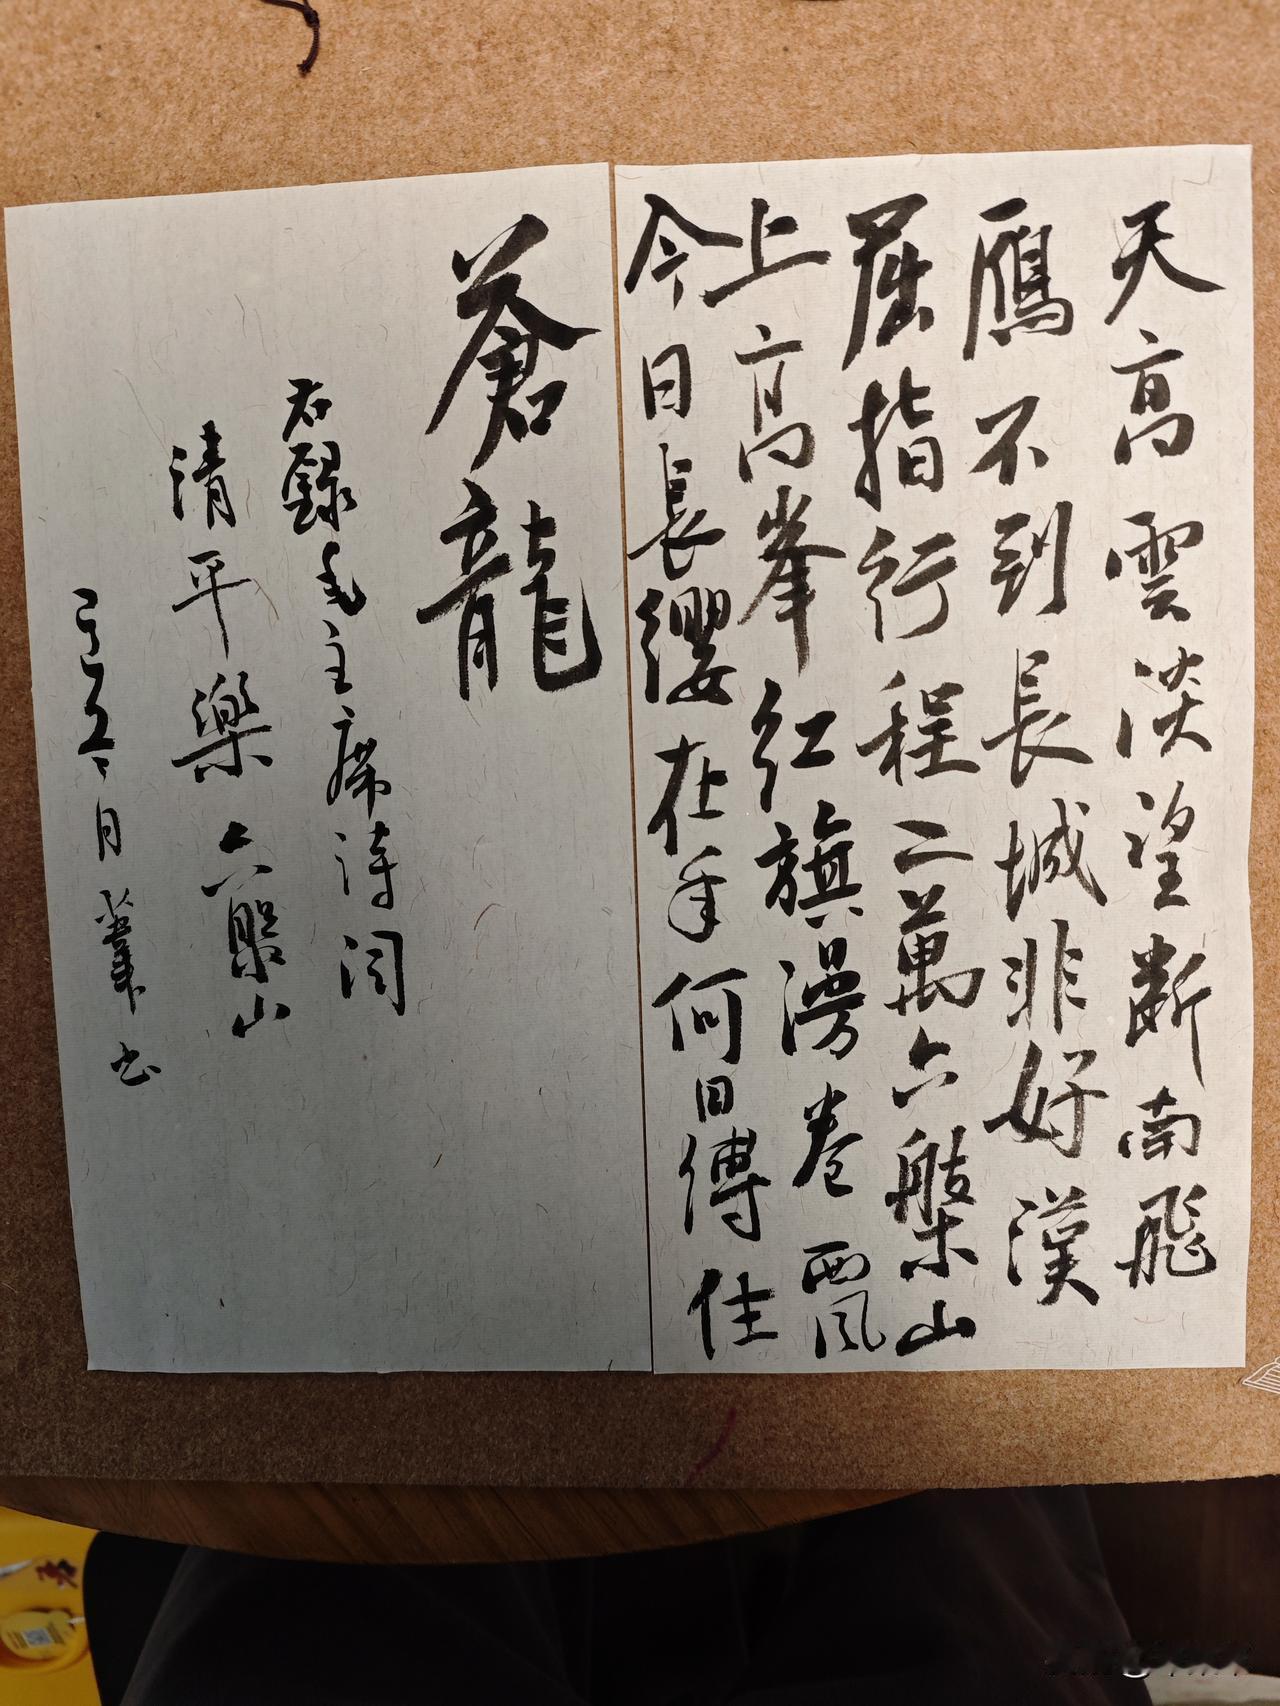 天高雲淡望斷南飛
鴈不到長城非好漢
屈指行程二萬六槃山
上高峯紅旗漫卷西風
今日長纓在手何日縛住
蒼龍
右録毛主席詩詞
清平樂六盤山
月肇书